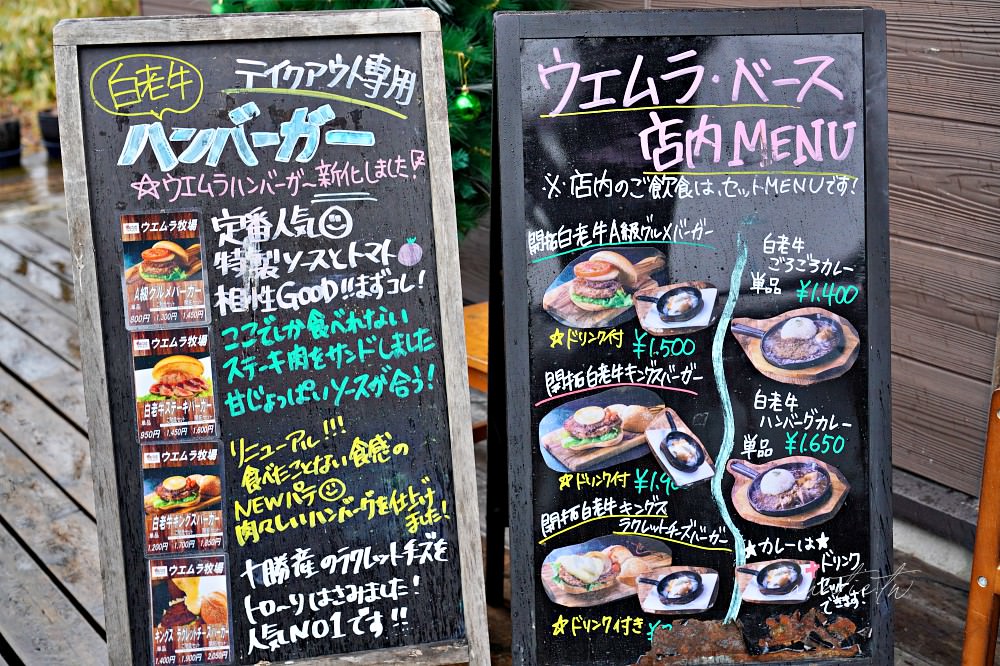 白老牛
テイクアウト専用
ハンバーガー
☆ウエムラハンバーガー新化しました!
ウエムラ牧場
A級グルメバーガー
単品
900円 1,300円 1,450円
定番人気
特製ソースとトマト
相性GOOD!!まずコレ!
ウエムラ牧場
白老牛ステーキバーガー
単品
950円 1,450円 1,600円
ここでしか食べれない
ステーキ肉をサンドしました
甘じょっぱいソースが合う!
ウエムラ牧場
白老牛キングスバーガー
単品
1,200円 1,700円 1,850円
リニューアル!!!
食べたことない食感の
NEWパテ
肉々しいハンバーグを仕上げ
ました!
ウエムラ牧場
キングス ラクレットチーズバーガー
単品
1,400円 1,900円 2,050円
十勝産のラクレットチーズを
トローリはさみました!
人気NO1です!!
ウエムラ・ベース
店内MENU
※店内のご飲食は、セットMENUです!
開拓白老牛A級グルメバーガー
☆ドリンク付 ¥1.500
開拓白老牛キングスバーガー
☆ドリンク付
開拓白老牛キングス
ラクレットチーズバーガー
☆ドリンク付き
白老牛
ごろごろカレー
単品 ¥1.400
白老牛
ハンバーグカレー
単品 ¥1.650
★カレーは★
ドリンク
セット
できます!